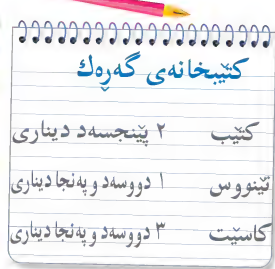 كتێبخانەى گەڕەك
كتێب ٢ پێنجسەد دينارى
تێنووس ١ دووسەد و پەنجا دينارى
كاسێت ٣ دووسەد و پەنجا دينارى